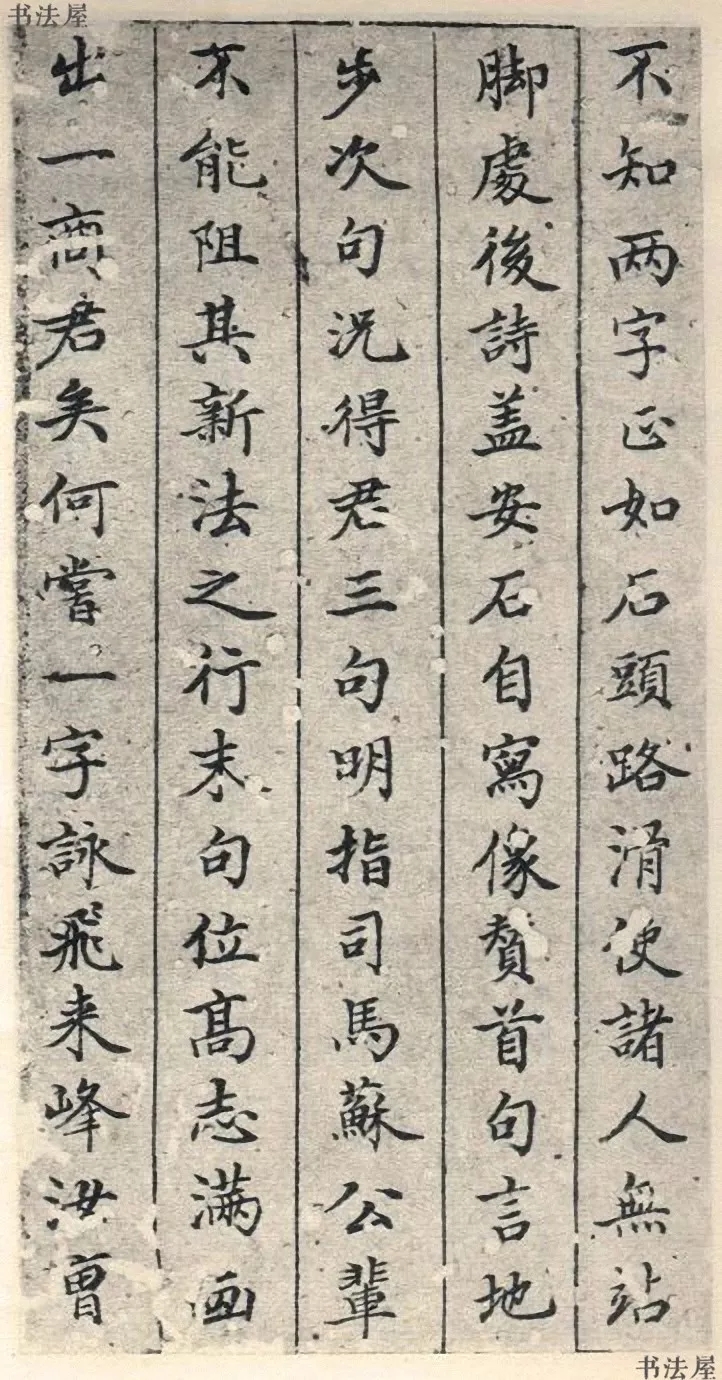 书法屋
不知两字正如石頭路滑使諸人無站
脚處後詩盖安石自寫像賛首句言地
步次句况得君三句明指司馬蘇公輩
不能阻其新法之行末句位高志满画
出一商君矣何嘗一字詠飛来峰洪曾
书法屋